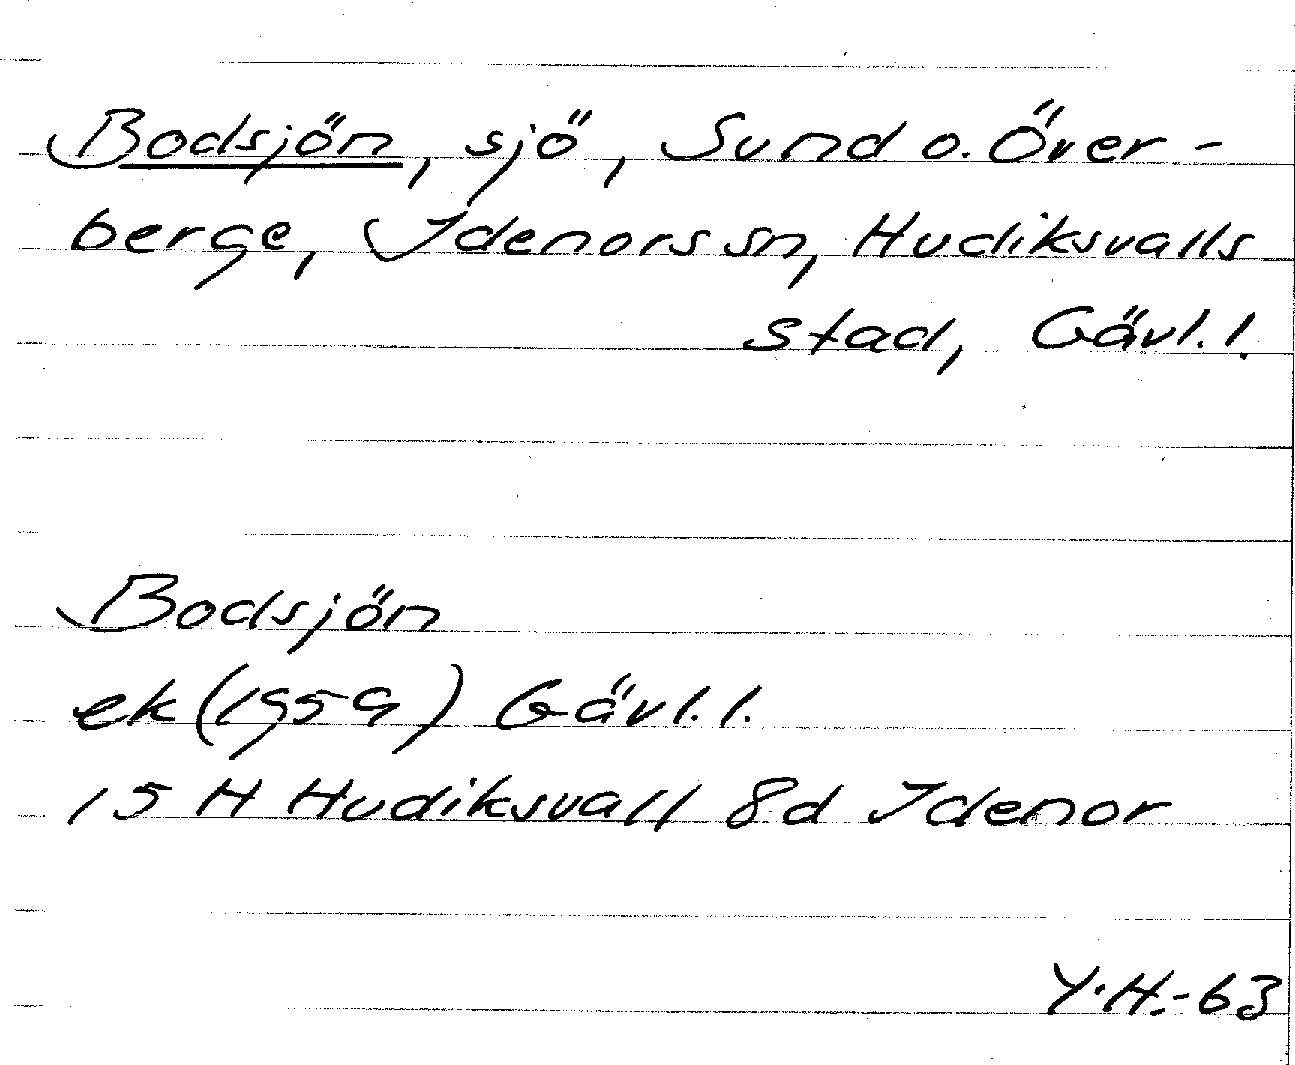 Bodsjön, sjö, Sund o. Över-
berge, Idenors sn, Hudiksvalls
stad, Gävl. l.
Bodsjön
ek (1959) Gävl. l.
15 H Hudiksvall 8d Idenor
Y.H.-63